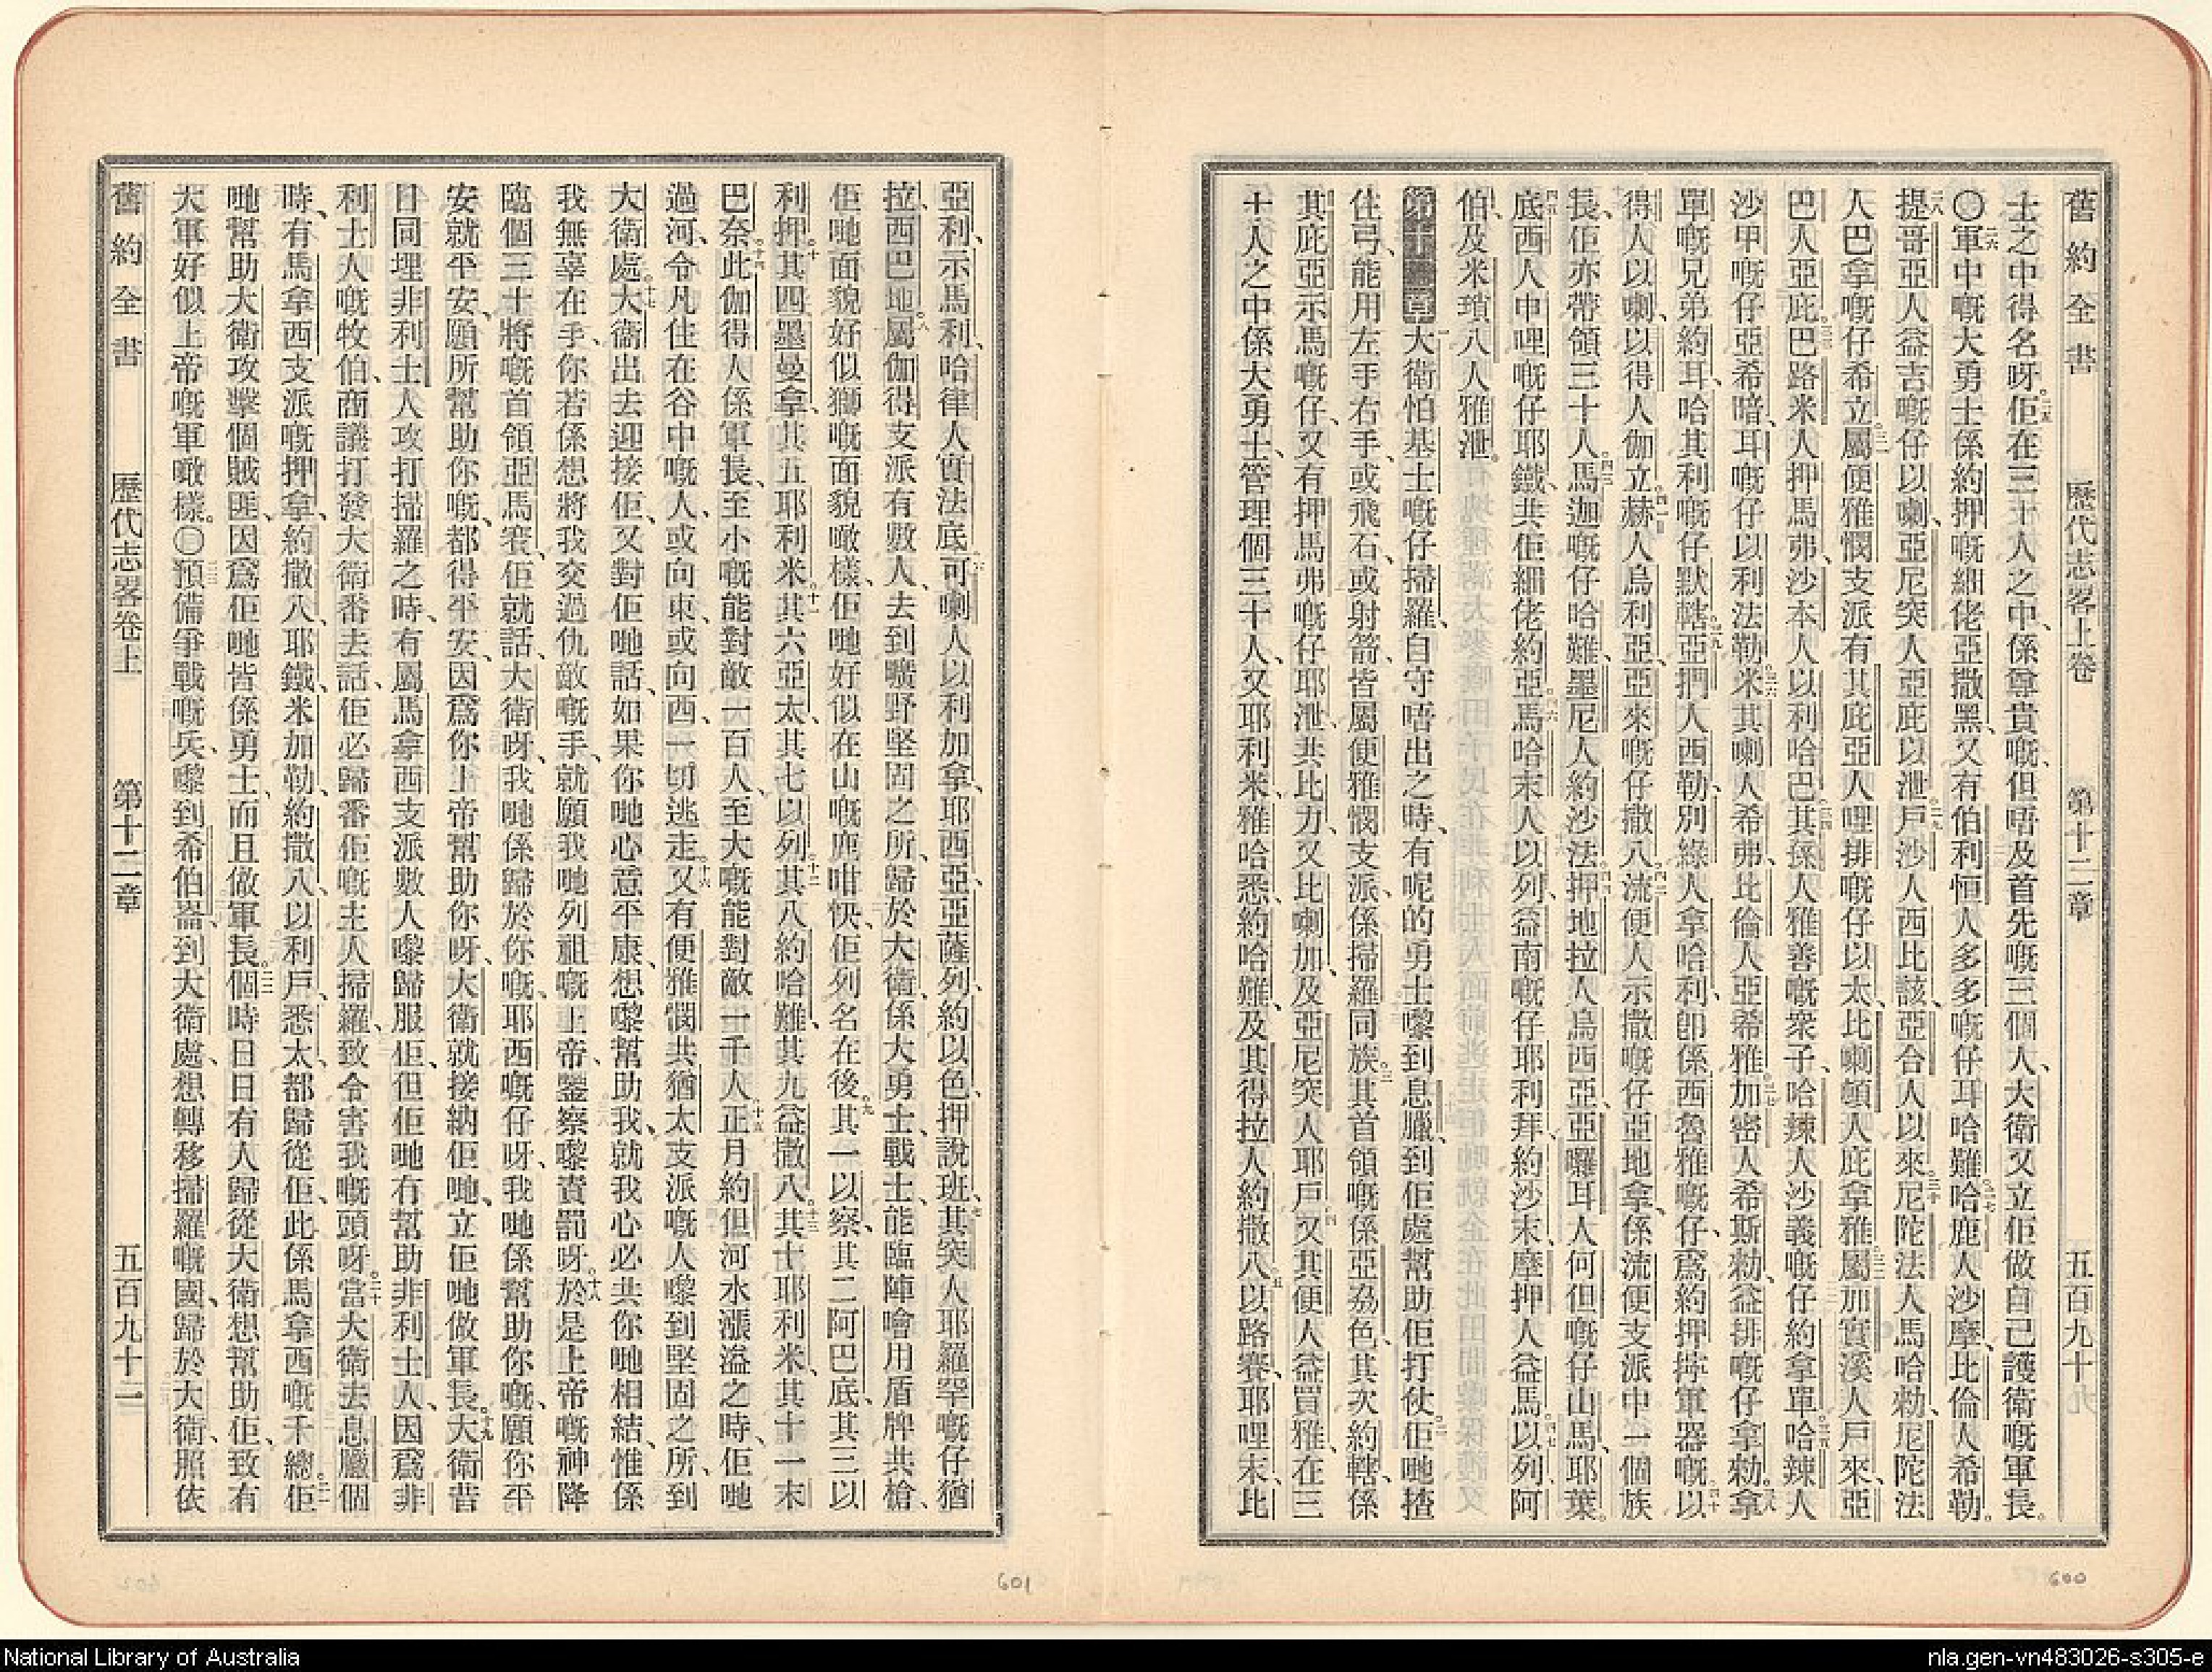 舊約全書 歷代志畧上卷 第十二章 五百九十
士之中得名呀。二五佢在三十人之中、係尊貴嘅、但唔及首先嘅三個人、大衛又立佢做自己護衛嘅軍長。
〇二六軍中嘅大勇士係約押嘅細佬亞撒黑、又有伯利恒人多多嘅仔耳哈難。二七哈鹿人沙摩、比倫人希勒。
二八提哥亞人益吉嘅仔以喇、亞尼突人亞庇以泄。二九戶沙人西比該、亞合人以來。三十尼陀法人馬哈勑、尼陀法
人巴拿嘅仔希立。三一屬便雅憫支派有其庇亞人哩排嘅仔以太、比喇頓人庇拿雅。三二屬加實溪人戶來、亞
巴人亞庇。三三巴路米人押馬弗、沙本人以利哈巴。三四其孫人雅善嘅衆子、哈辣人沙義嘅仔約拿單。三五哈辣人
沙甲嘅仔亞希暗、耳嘅仔以利法勒。三六米其喇人希弗、比倫人亞希雅。三七加密人希斯勑、益排嘅仔拿勑。三八拿
單嘅兄弟約耳、哈其利嘅仔默轄。三九亞捫人西勒、別綠人拿哈利、卽係西魯雅嘅仔、爲約押拵軍器嘅。四十以
得人以喇、以得人伽立。四一赫人烏利亞、亞來嘅仔撒八。四二流便人示撒嘅仔亞地拿、係流便支派中一個族
長、佢亦帶領三十人。四三馬迦嘅仔哈難、墨尼人約沙法。四四押地拉人烏西亞、亞囉耳人何但嘅仔山馬、耶葉。
四五底西人申哩嘅仔耶鐵、共佢細佬約亞。四六馬哈末人以列、益南嘅仔耶利拜、約沙末、摩押人益馬。四七以列、阿
伯、及米瑣八人雅泄。
第十二章 一大衛怕基士嘅仔掃羅、自守唔出之時、有呢的勇士嚟到息臘、到佢處幫助佢打仗。二佢哋揸
住弓、能用左手右手、或飛石、或射箭、皆屬便雅憫支派、係掃羅同族。三其首領嘅係亞劦色、其次約轄、係
其庇亞示馬嘅仔、又有押馬弗嘅仔耶泄、共比力、又比喇加、及亞尼突人耶戶。四又其便人益買雅、在三
十人之中係大勇士、管理個三十人、又耶利米、雅哈悉、約哈難、及其得拉人約撒八。五以路賽、耶哩末、比
亞利、示馬利、哈律人實法底。六可喇人以利加拿、耶西亞、亞薩列、約以色、押說班。七其突人耶羅罕嘅仔猶
拉、西巴地。八屬伽得支派有數人、去到曠野堅固之所、歸於大衛、係大勇士、戰士、能臨陣噲用盾牌共槍、
佢哋面貌好似獅嘅面貌噉樣、佢哋好似在山嘅鹿咁快、佢列名在後。九其一以察、其二阿巴底、其三以
利押。十其四墨曼拿、其五耶利米。十一其六亞太、其七以列。十二其八約哈難、其九益撒八。十三其十耶利米、其十一末
巴奈。十四此伽得人係軍長、至小嘅能對敵一百人、至大嘅能對敵一千人。十五正月約但河水漲溢之時、佢哋
過河、令凡住在谷中嘅人、或向東、或向西、一切逃走。十六又有便雅憫共猶太支派嘅人嚟到堅固之所、到
大衛處。十七大衛出去迎接佢、又對佢哋話、如果你哋心意平康想嚟幫助我、就我心必共你哋相結、惟係
我無辜在手、你若係想將我交過仇敵嘅手、就願我哋列祖嘅上帝、鑒察嚟責罰呀。十八於是上帝嘅神降
臨個三十將嘅首領亞馬賽、佢就話、大衛呀、我哋係歸於你嘅、耶西嘅仔呀、我哋係幫助你嘅、願你平
安就平安、願所幫助你嘅、都得平安、因爲你上帝幫助你呀、大衛就接納佢哋、立佢哋做軍長。十九大衛昔
日同埋非利士人攻打掃羅之時、有屬馬拿西支派數人嚟歸服佢、但佢哋冇幫助非利士人、因爲非
利士人嘅牧伯、商議打發大衛番去話、佢必歸番佢嘅主人掃羅、致令害我嘅頭呀。二十當大衛去息臘個
時、有馬拿西支派嘅押拿、約撒八、耶鐵、米加勒、約撒八、以利戶、悉太、都歸從佢、此係馬拿西嘅千總。二一佢
哋幫助大衛攻擊個賊匪、因爲佢哋皆係勇士、而且做軍長。二二個時日日有人歸從大衛想幫助佢、致有
大軍好似上帝嘅軍噉樣。〇二三預備爭戰嘅兵、嚟到希伯崙、到大衛處、想轉移掃羅嘅國、歸於大衛、照依
舊約全書 歷代志畧卷上 第十二章 五百九十一
600
601
National Library of Australia
nla.gen-vn483026-s305-e